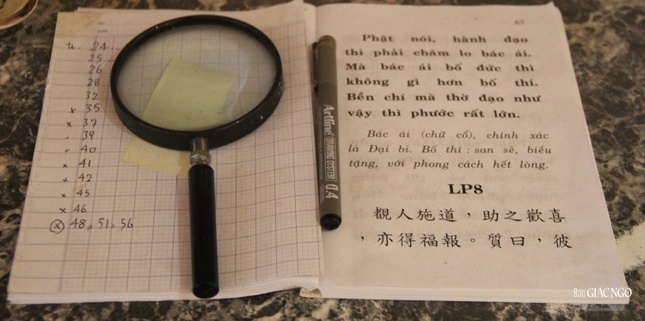 u. 24
25
26
28
32
x 35
x 37
39
40
x 41
x 42
x 45
x 46
ⓧ 48. 51. 56
Artline DRAWING SYSTEM 0.4
Phật nói, hành đạo
thì phải chăm lo bác ái.
Mà bác ái bố đức thì
không gì hơn bố thí.
Bền chí mà thờ đạo như
vậy thì phước rất lớn.
Bác ái (chữ cổ), chính xác
là Đại bi. Bố thí : san sẻ, biếu
tặng, với phong cách hết lòng.
LP8
覩人施道，助之歡喜
，亦得福報。質曰，彼
Báo GIÁC NGỘ